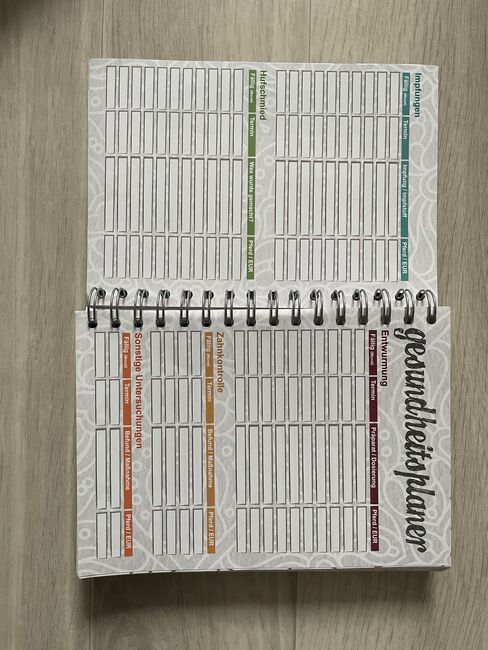 Impfungen
Fällig (Monat) Termin Impfung / Impfstoff Pferd / EUR
Hufschmied
Fällig (Monat) Termin Was wurde gemacht? Pferd / EUR
gesundheitsplaner
Entwurmung
Fällig (Monat) Termin Präparat / Dosierung Pferd / EUR
Zahnkontrolle
Fällig (Monat) Termin Befund / Maßnahme Pferd / EUR
Sonstige Untersuchungen
Fällig (Monat) Termin Befund / Maßnahme Pferd / EUR